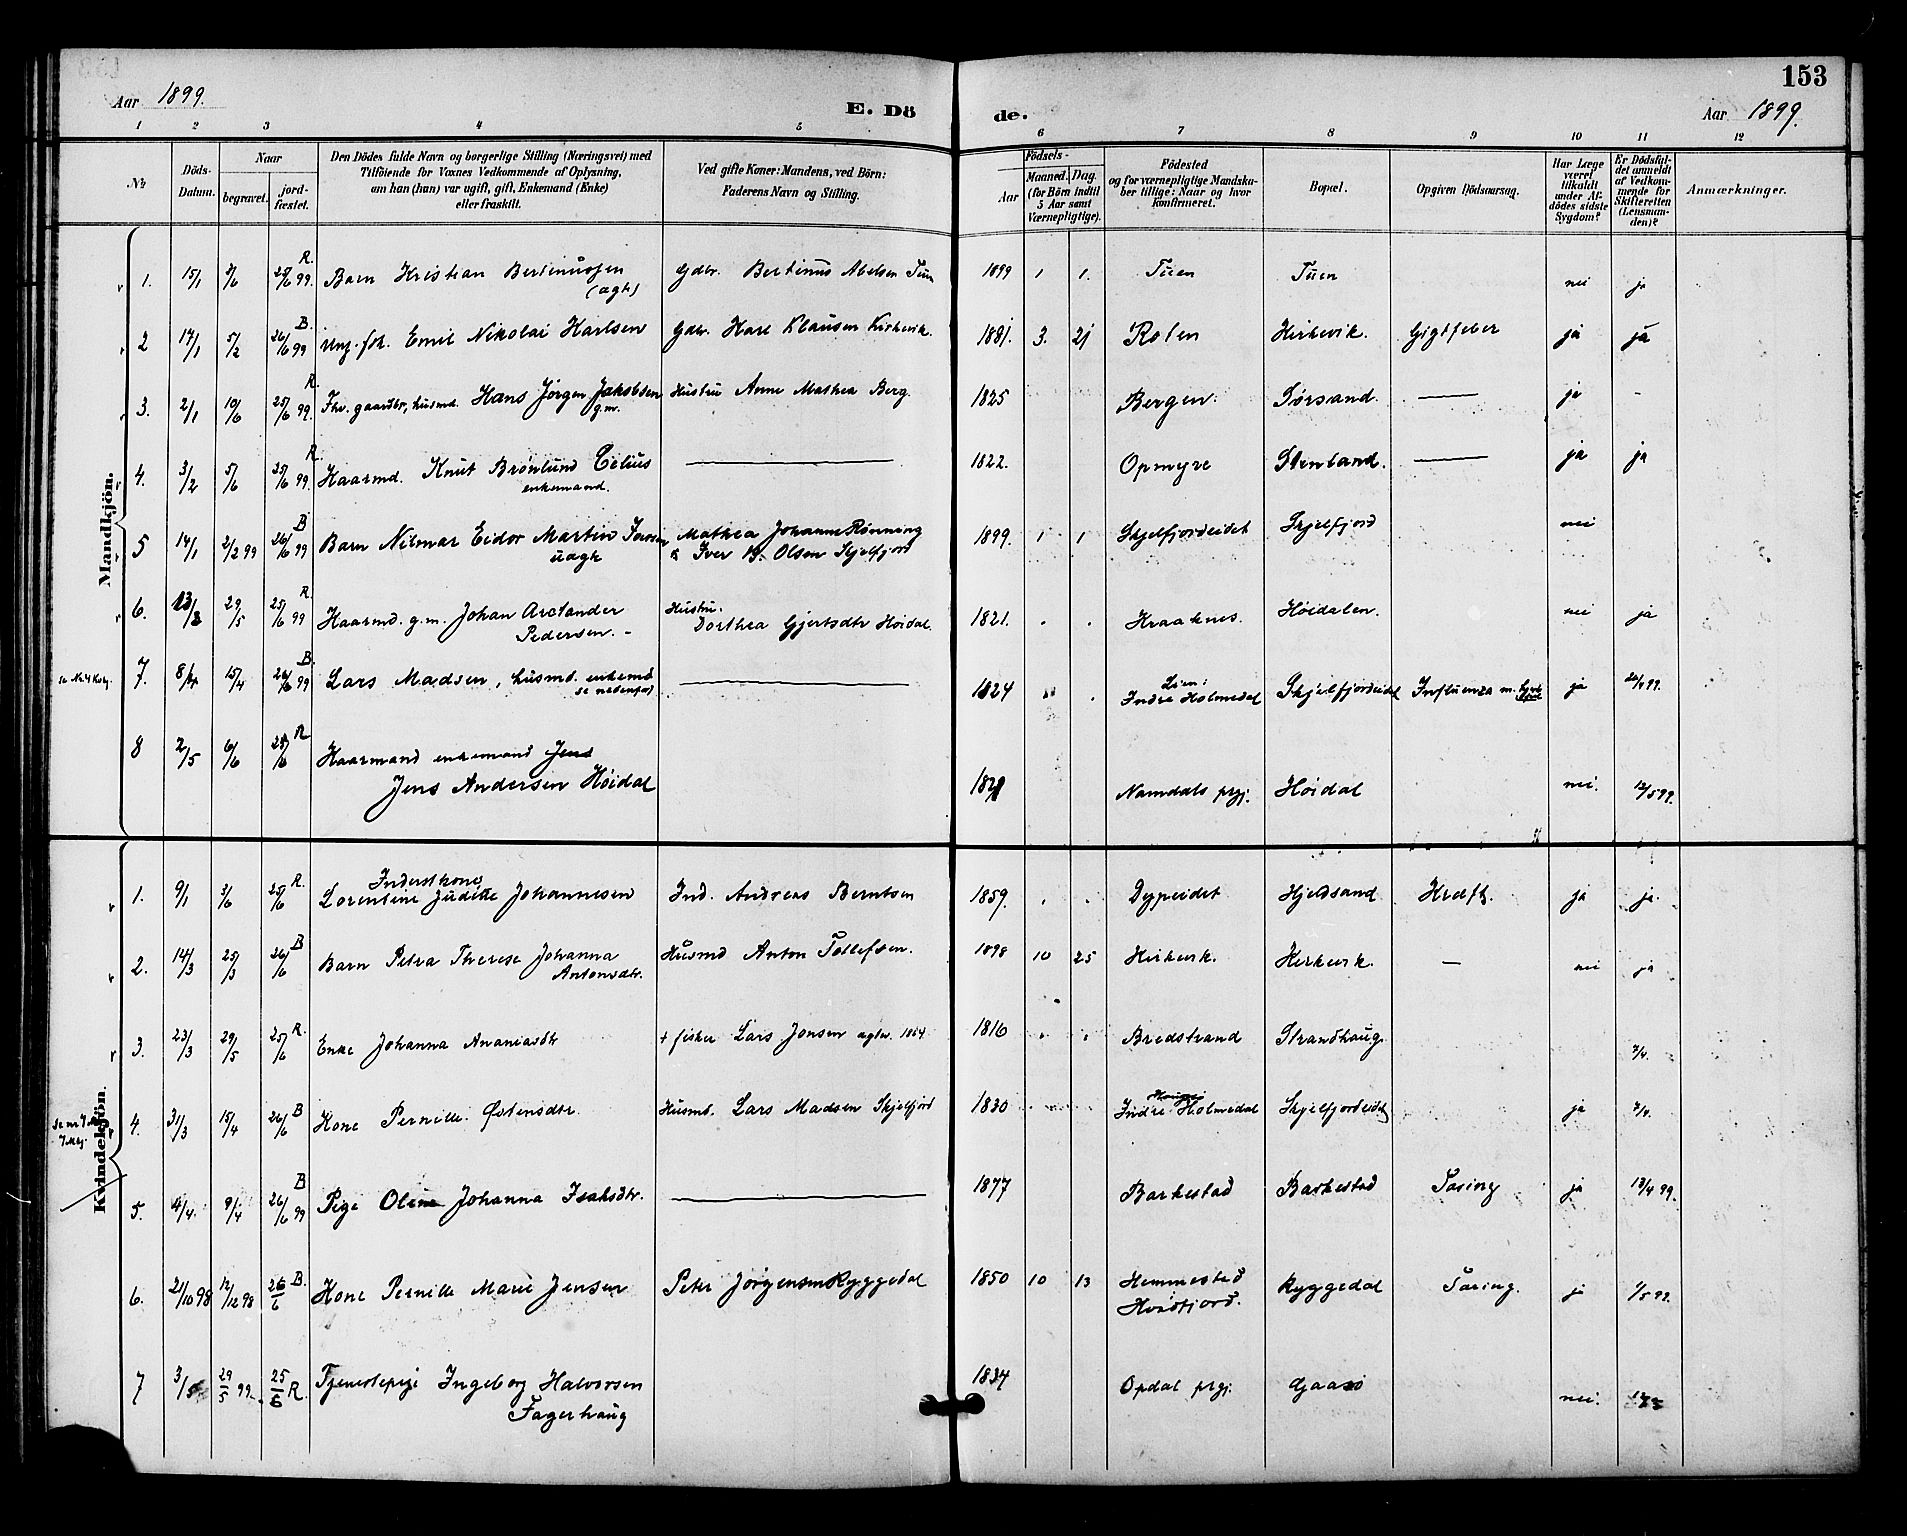 153
Aar 1899.
E. Dö de.
Aar 1899.
1 2 3 4 5 6 7 8 9 10 11 12
No
Döds-Datum.
Naar
begravet.
jord-fæstet.
Den Dödes fulde Navn og borgerlige Stilling (Næringsvei) med
Tilföiende for Voxnes Vedkommende af Oplysning,
om han (hun) var ugift, gift, Enkemand (Enke)
eller fraskilt.
Ved gifte Koner: Mandens, ved Börn:
Faderens Navn og Stilling.
Födsels-
Aar
Maaned. Dag.
(for Börn indtil
5 Aar samt
Værnepligtige).
Födested
og for værnepligtige Mandska-
ber tillige: Naar og hvor
konfirmeret.
Bopæl.
Opgiven Dödsaarsag.
Har Læge
været
tilkaldt
under Af-
dödes sidste
Sygdom?
Er Dödsful-
det anmeldt
af Vedkom-
mende for
Skifteretten
(Lensman-
den)?
Anmærkninger.
Mandkjön.
1. 15/1 3/6 25/6 99. R. Barn Kristian Bertinussen (ægte) Gdbr. Bertinus Abelsen Tuen 1899 1 1. Tuen Tuen nei ja
2 17/1 5/2 26/6 99 B. Ung. fsk. Emil Nikolai Karlsen Gdbr. Karl Klausen Kirkevik 1881. 3. 21 Roten Kirkevik. Gigtfeber ja ja
3. 2/1 10/6 25/6 99. R. Fhv. gaardbr, husmd. Hans Jørgen Jakobsen g.m. Hustru Anne Mathea Berg. 1825 Bergen. Sørsand. — ja -
4. 3/2 5/6 25/6 99. R. Kaarmd. Knut Brønlund Celius enkemand. — 1822. Opmyre Stenland. — ja ja
5 14/1 2/2 99 26/6 99 B Barn Hilmar Eidor Martin Iversen uægte Mathea Johanne Rønning & Iver B. Olsen Skjelfjord 1899. 1 1 Skjelfjordeidet Skjelfjord nei
6. 13/3 29/5 25/6 99 R. Kaarmd. g.m. Johan Arctander Pedersen. - Hustru. Dorthea Gjertsdtr Høidal. 1821. Kraaknes. Høidalen. nei ja
7. 8/4 15/4 26/6 99 B. Lars Madsen, husmd. enkemd se nedenfor) — 1824 Indre Holmedal Skjelfjordeidet Influenza m. ja 20/4 99.
8 2/5 6/6 25/6 R Kaarmand enkemand Jens
Jens Andersen Høidal 1821 Namdals prgj. Høidal nei. 12/5 99.
Kvindekjön.
1. 9/1 3/6 25/6 R. Inderstkone Lorentine Judithe Johannesen Ind. Andreas Berntsen 1859. Dypeidet Hjeldsand Kræft. ja ja.
2. 14/3 25/3 26/6 B Barn Petra Therese Johanna Antonsdtr. Husmd Anton Tollefsen. 1898 10 25 Kirkevk. Kirkevk. — nei ja
3. 23/3 29/5 25/6 R. Enke Johanna Ananiasdtr + fisker Lars Jonsen 1864. 1816 Bredstrand Strandhaug. 7/4.
4. 31/3 15/4 26/6 B Kone Pernille Østensdtr. Husmd. Lars Madsen Skjelfjord 1830 Indre Holmedal Skjelfjordeidet ja 7/4.
5. 4/4. 9/4 26/6 99 B Pige Oline Johanna Isaksdtr. — 1877 Barkestad Barkestad Tæring ja 13/4 99.
6. 21/10 98 12/12 98 26/6 B. Kone Pernille Marie Jensen Peter Jørgensen Ryggedal 1850 10 13 Hemmestad Kvædfjord. Ryggedal Tæring. ja 1/5 99.
7 3/5 29/5 99. 25/6 R. Tjenestepige Ingeborg Halvorsen
Fagerhaug 1834 Opdal prgj. Gaasø nei.